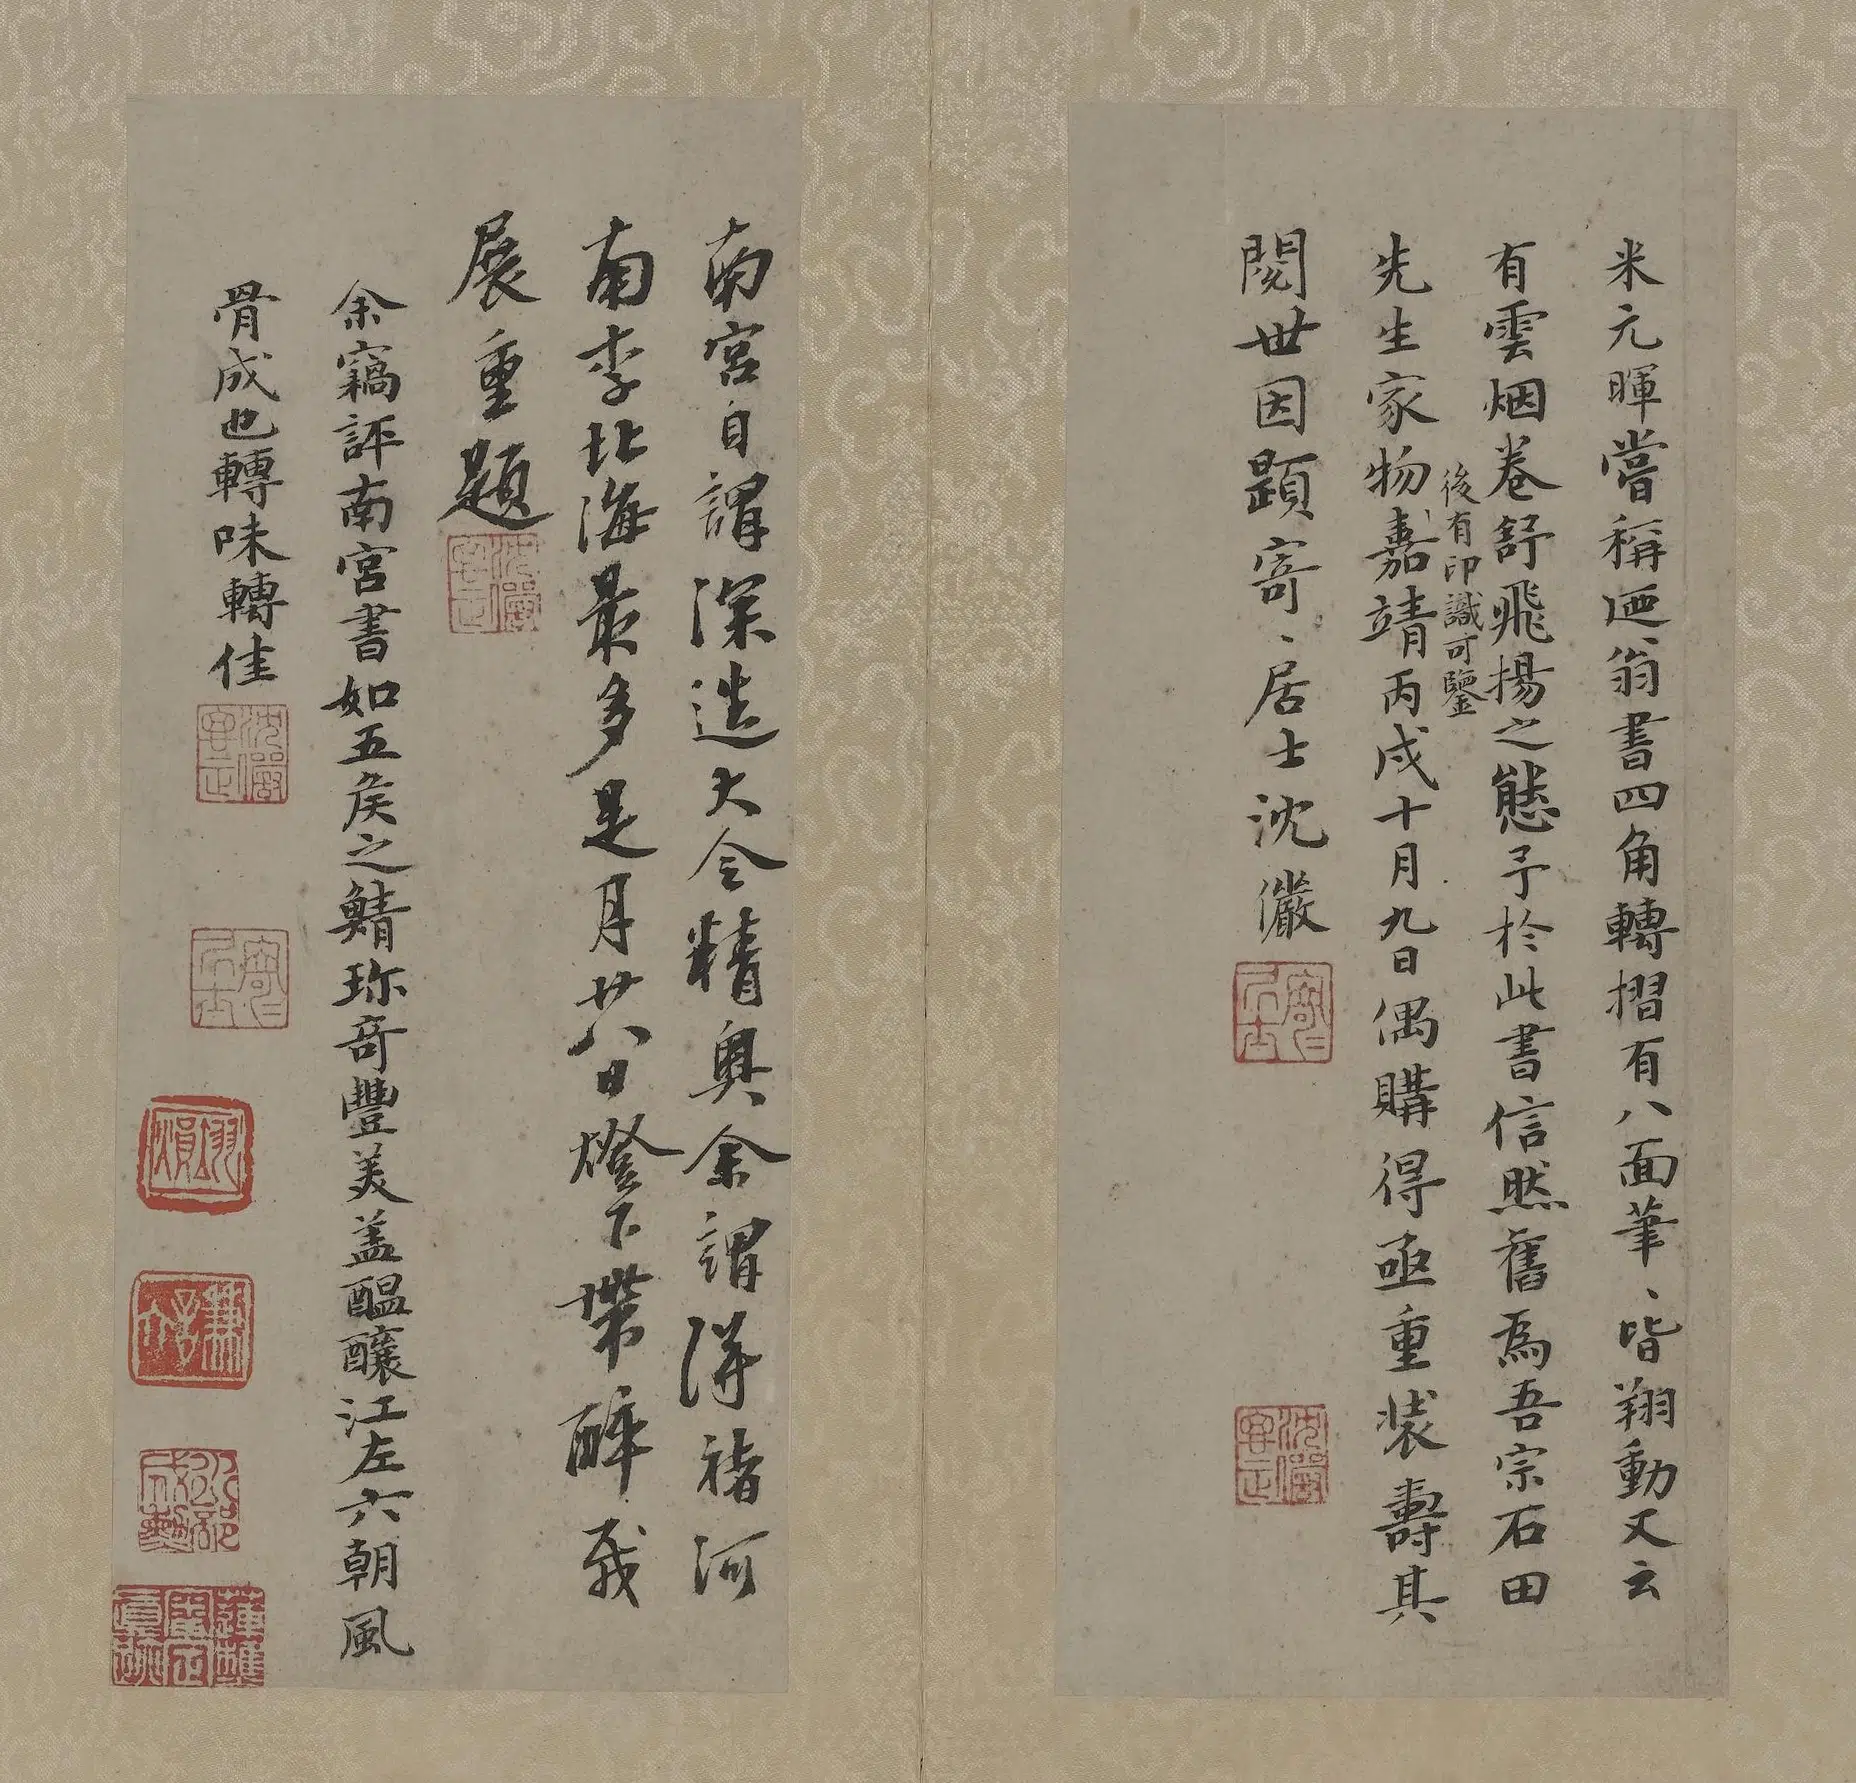 米元暉嘗稱迺翁書四角轉摺有八面筆、皆翔動又云
有雲烟卷舒飛揚之態予於此書信然舊為吾宗石田
後有印識可鑒
先生家物嘉靖丙戌十月九日偶購得亟重裝壽其
閱世因題寄、居士沈
南宮自謂深造大令精奥余謂得褚河
南李北海最多是月廿八日燈下帶醉戏
展重題
余竊評南宮書如五矦之鯖珎奇豐美盖醖釀江左六朝風
骨成也轉味轉佳